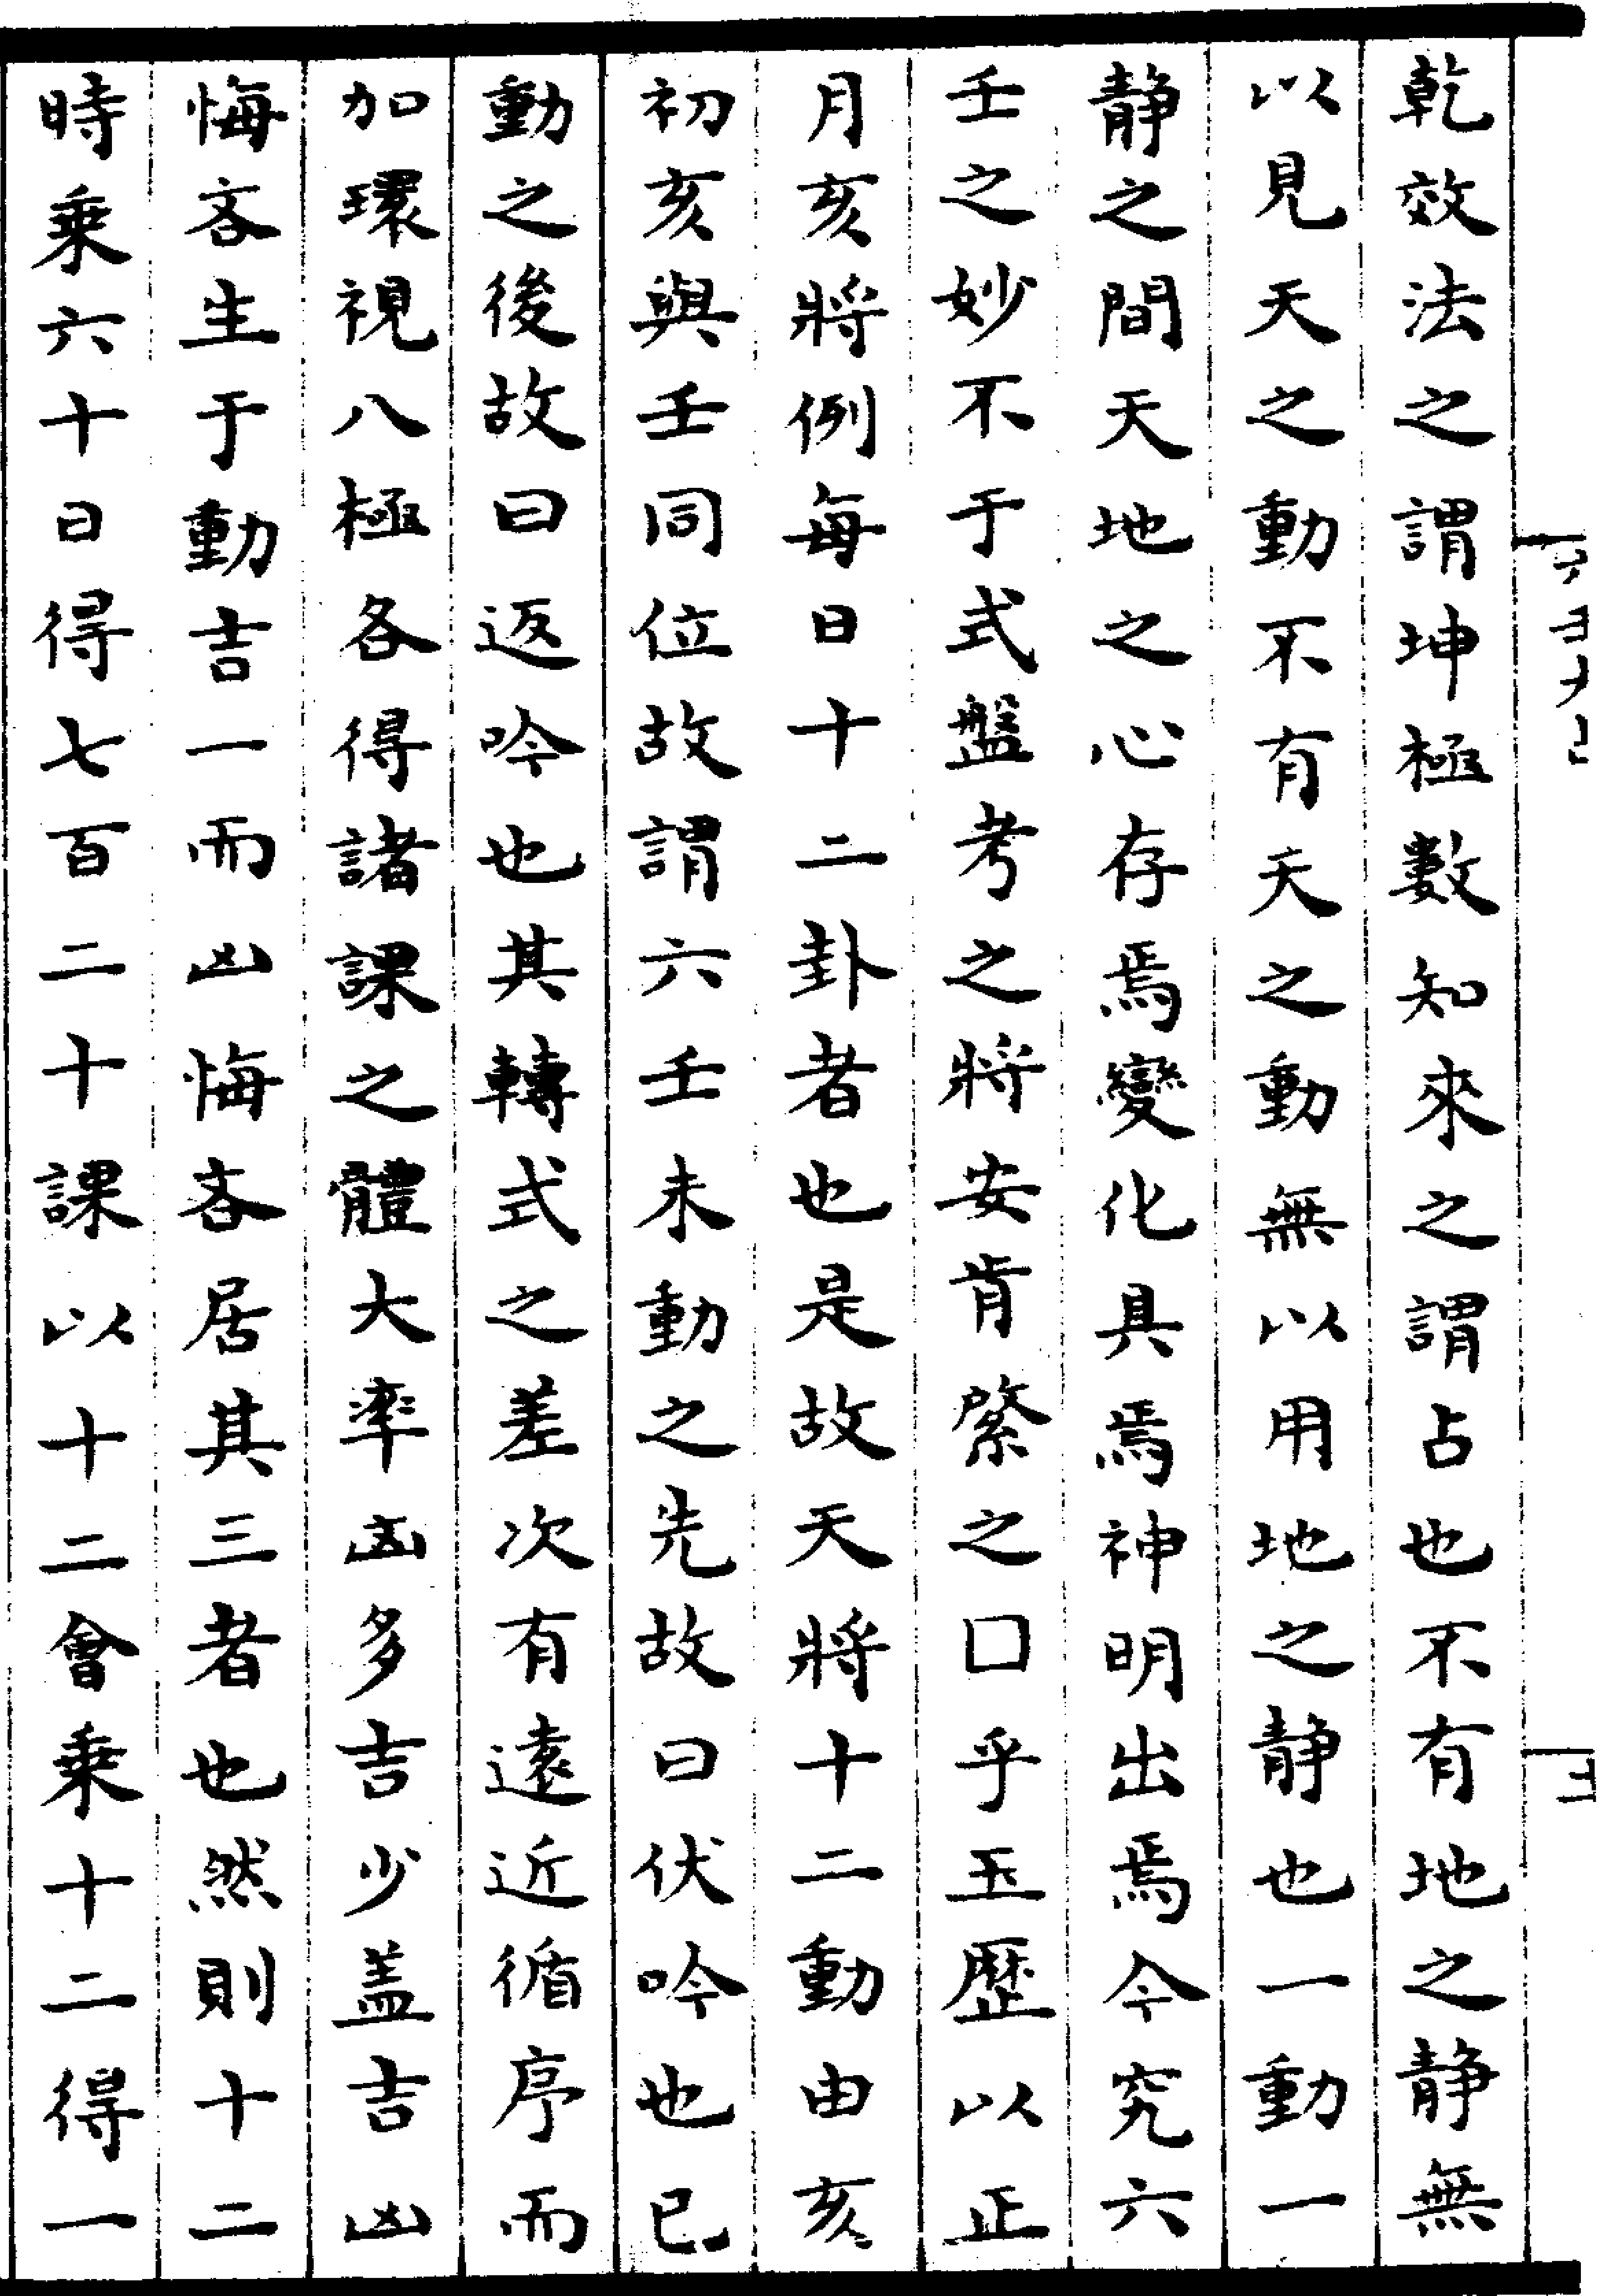 乾效法之謂坤極數知來之謂占也不有地之静無
以見天之動不有天之動無以用地之静也一動一
静之間天地之心存焉變化具焉神明出焉今究六
壬之妙不于式盤考之將安肯綮之口乎玉歷以正
月亥將例每日十二卦者也是故天將十二動由亥
初亥與壬同位故謂六壬未動之先故曰伏吟也已
動之後故曰返吟也其轉式之差次有遠近循序而
加環視八極各得諸課之體大率凶多吉少盖吉凶
悔吝生于動吉一而凶悔吝居其三者也然則十二
時乘六十日得七百二十課以十二會乘十二得一